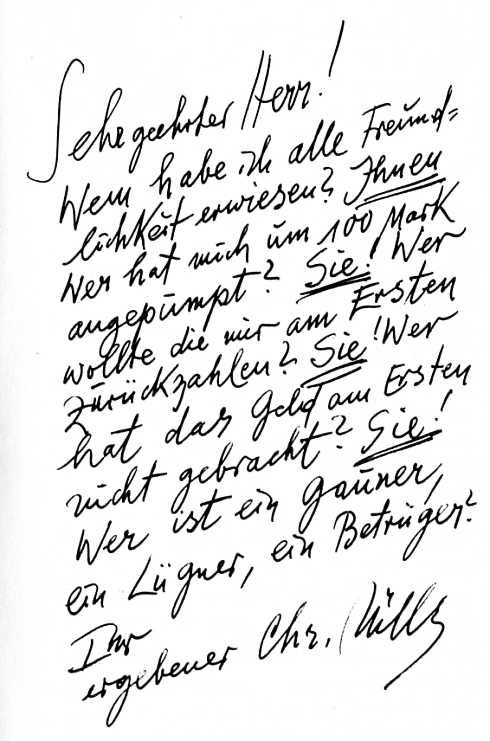 Sehr geehrter Herr!
Wem habe ich alle Freund=
lichkeit erwiesen? Ihnen
Wer hat mich um 100 Mark
angepumpt? Sie! Wer
wollte die mir am Ersten
zurückzahlen? Sie! Wer
hat das Geld am Ersten
nicht gebracht? Sie!
Wer ist ein Gauner,
ein Lügner, ein Betrüger?
Ihr
ergebener Chr.